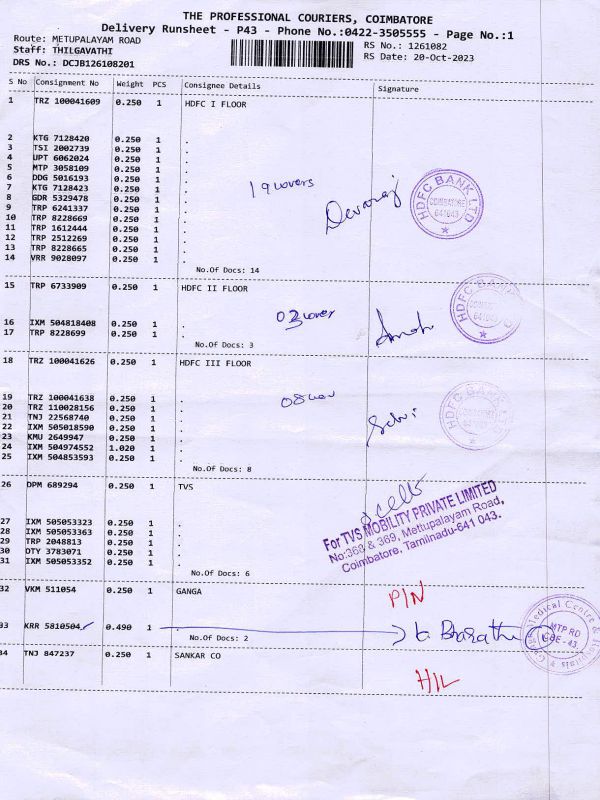 THE PROFESSIONAL COURIERS, COIMBATORE
Delivery Runsheet - P43 - Phone No.:0422-3505555 - Page No.:1
Route: METUPALAYAM ROAD
RS No.: 1261082
Staff: THILGAVATHI
RS Date: 20-Oct-2023
DRS No.: DCJB126108201
S No Consignment No Weight PCS Consignee Details Signature
1 TRZ 100041609 0.250 1 HDFC I FLOOR
2 KTG 7128420 0.250 1 .
3 TSI 2002739 0.250 1 .
4 UPT 6062024 0.250 1 .
5 MTP 3058109 0.250 1 .
6 DDG 5016193 0.250 1 .
7 KTG 7128423 0.250 1 .
8 GDR 5329478 0.250 1 .
9 TRP 6241337 0.250 1 .
10 TRP 8228669 0.250 1 .
11 TRP 1612444 0.250 1 .
12 TRP 2512269 0.250 1 .
13 TRP 8228665 0.250 1 .
14 VRR 9028097 0.250 1 .
19 covers
Devaraj
HDFC BANK LTD
COIMBATORE
641043
No.Of Docs: 14
15 TRP 6733909 0.250 1 HDFC II FLOOR
16 IXM 504818408 0.250 1 .
17 TRP 8228699 0.250 1 .
03 cover
HDFC BANK
641043
No.Of Docs: 3
18 TRZ 100041626 0.250 1 HDFC III FLOOR
19 TRZ 100041638 0.250 1 .
20 TRZ 110028156 0.250 1 .
21 TNJ 22568740 0.250 1 .
22 IXM 505018590 0.250 1 .
23 KMU 2649947 0.250 1 .
24 IXM 504974552 1.020 1 .
25 IXM 504853593 0.250 1 .
08
Selvi
HDFC BANK
No.Of Docs: 8
26 DPM 689294 0.250 1 TVS
27 IXM 505053323 0.250 1 .
28 IXM 505053363 0.250 1 .
29 TRP 2048813 0.250 1 .
30 DTY 3783071 0.250 1 .
31 IXM 505053352 0.250 1 .
For TVS MOBILITY PRIVATE LIMITED
No:368 & 369, Mettupalayam Road,
Coimbatore, Tamilnadu-641 043.
No.Of Docs: 6
32 VKM 511054 0.250 1 GANGA
PIN
33 KRR 5810504 0.490 1 .
Bharathi
Medical Centre &
MTP RD
CBE-43
No.Of Docs: 2
34 TNJ 847237 0.250 1 SANKAR CO
H/L